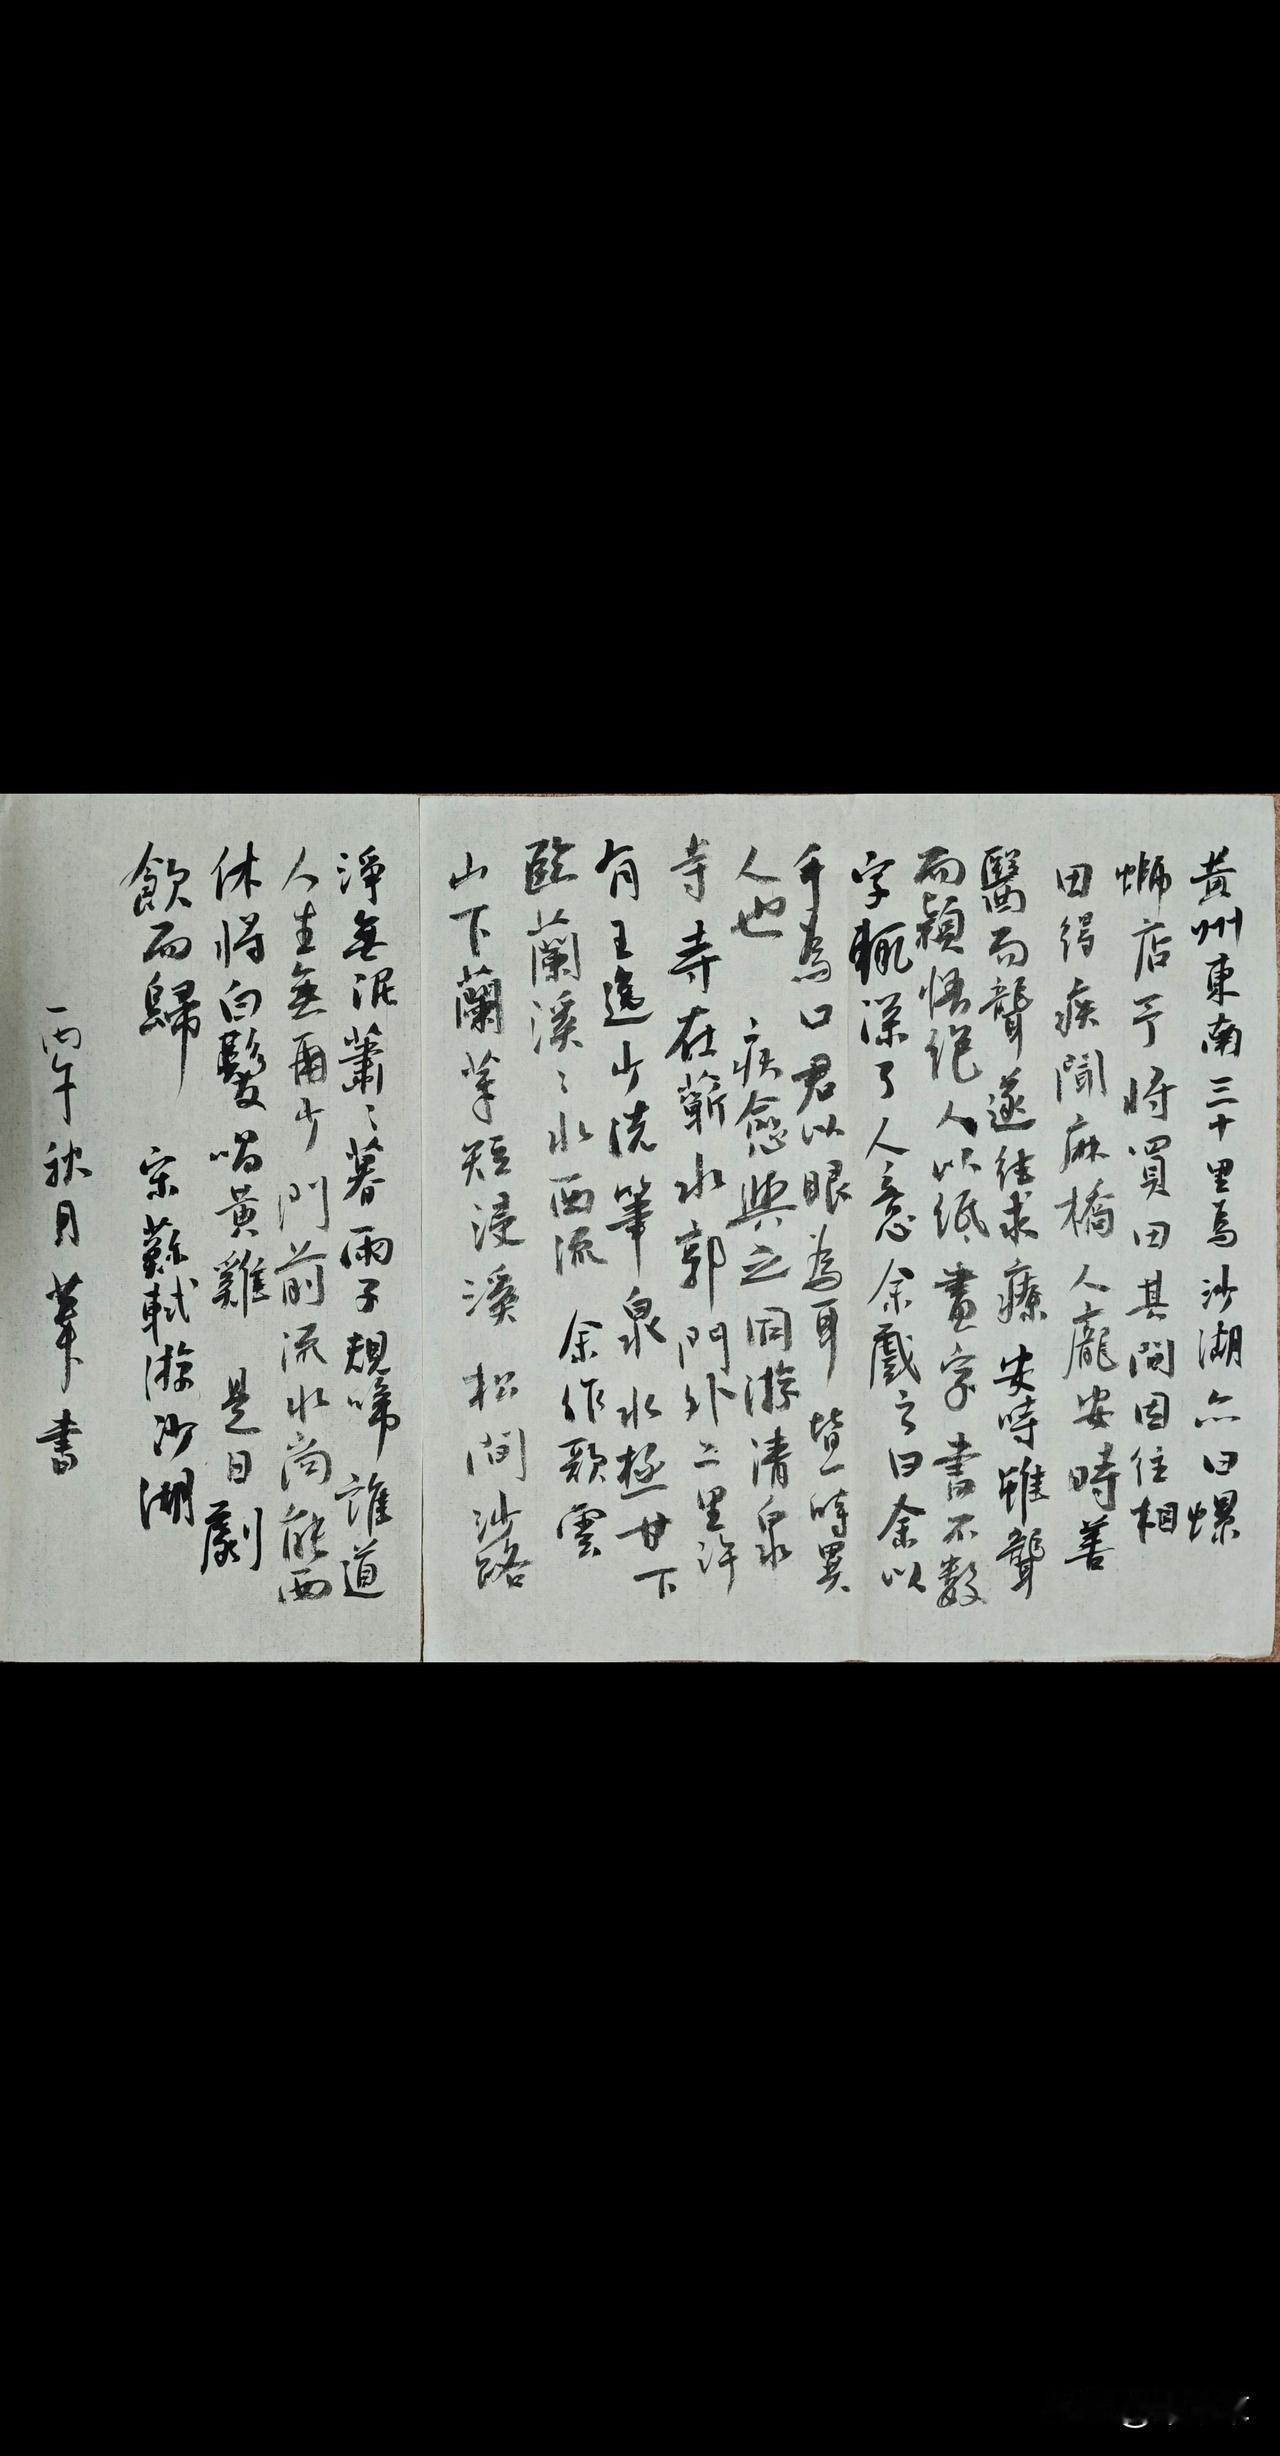 黃州東南三十里爲沙湖亦曰螺
螄店予将買田其間因往相
田得疾聞麻橋人龐安時善
醫而聾遂往求療安時雖聾
而穎悟絕人以紙畫字書不數
字輒深了人意余戲之曰余以
手為口君以眼為耳皆一時異
人也 疾愈與之同游清泉
寺寺在蘄水郭門外二里許
有王逸少洗筆泉水極甘下
臨蘭溪〻水西流 余作歌雲
山下蘭芽短浸溪 松間沙路
淨無泥蕭〻暮雨子規啼 誰道
人生無再少門前流水尚能西
休將白髮唱黃雞 是日劇
飲而歸 宋蘇軾游沙湖
丙午秋月 書